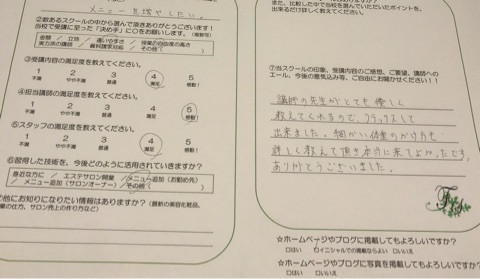 メニューを増やしたい。
②数あるスクールの中から選んで頂きありがとうございます!
当校で受講に至った「決め手」に○をお願いします!
金額 / 立地 / 通いやすさ / 授業の自由度の高さ
実力派の講師 / 資料請求対応 / その他
③受講内容の満足度を教えてください。
1 2 3 4 5
不満 やや不満 普通 満足 感動!
④担当講師の満足度を教えてください。
1 2 3 4 5
不満 やや不満 普通 満足 感動!
⑤スタッフの満足度を教えてください。
1 2 3 4 5
不満 やや不満 普通 満足 感動!
⑥習得した技術を、今後どのように活用されていきますか?
身近な方に / エステサロン開業 / メニュー追加(お勤め先)
/ メニュー追加(サロンオーナー) / その他(
他にお知りになりたい情報はありますか?(最新の美容化粧品、
業の仕方、サロン売上の作り方など)
また、比較した中で当校を選んでいただいたポイントを、
出来るだけ詳しく教えてください。
⑦当スクールの印象、受講内容のご感想、ご要望、講師への
エール、今後の意気込み等、ご自由にお聞かせください!
講師の先生がとても優しく
教えてくれるので、リラックスして
出来ました。細かい体重のかけ方も
詳しく教えて頂き本当に来てよかったです。
ありがとうございました。
☆ホームページやブログに掲載してもよろしいですか?
□はい □イニシャルでの掲載ならよい □いいえ
☆ホームページやブログに写真を掲載してもよろしいですか?
□はい □いいえ